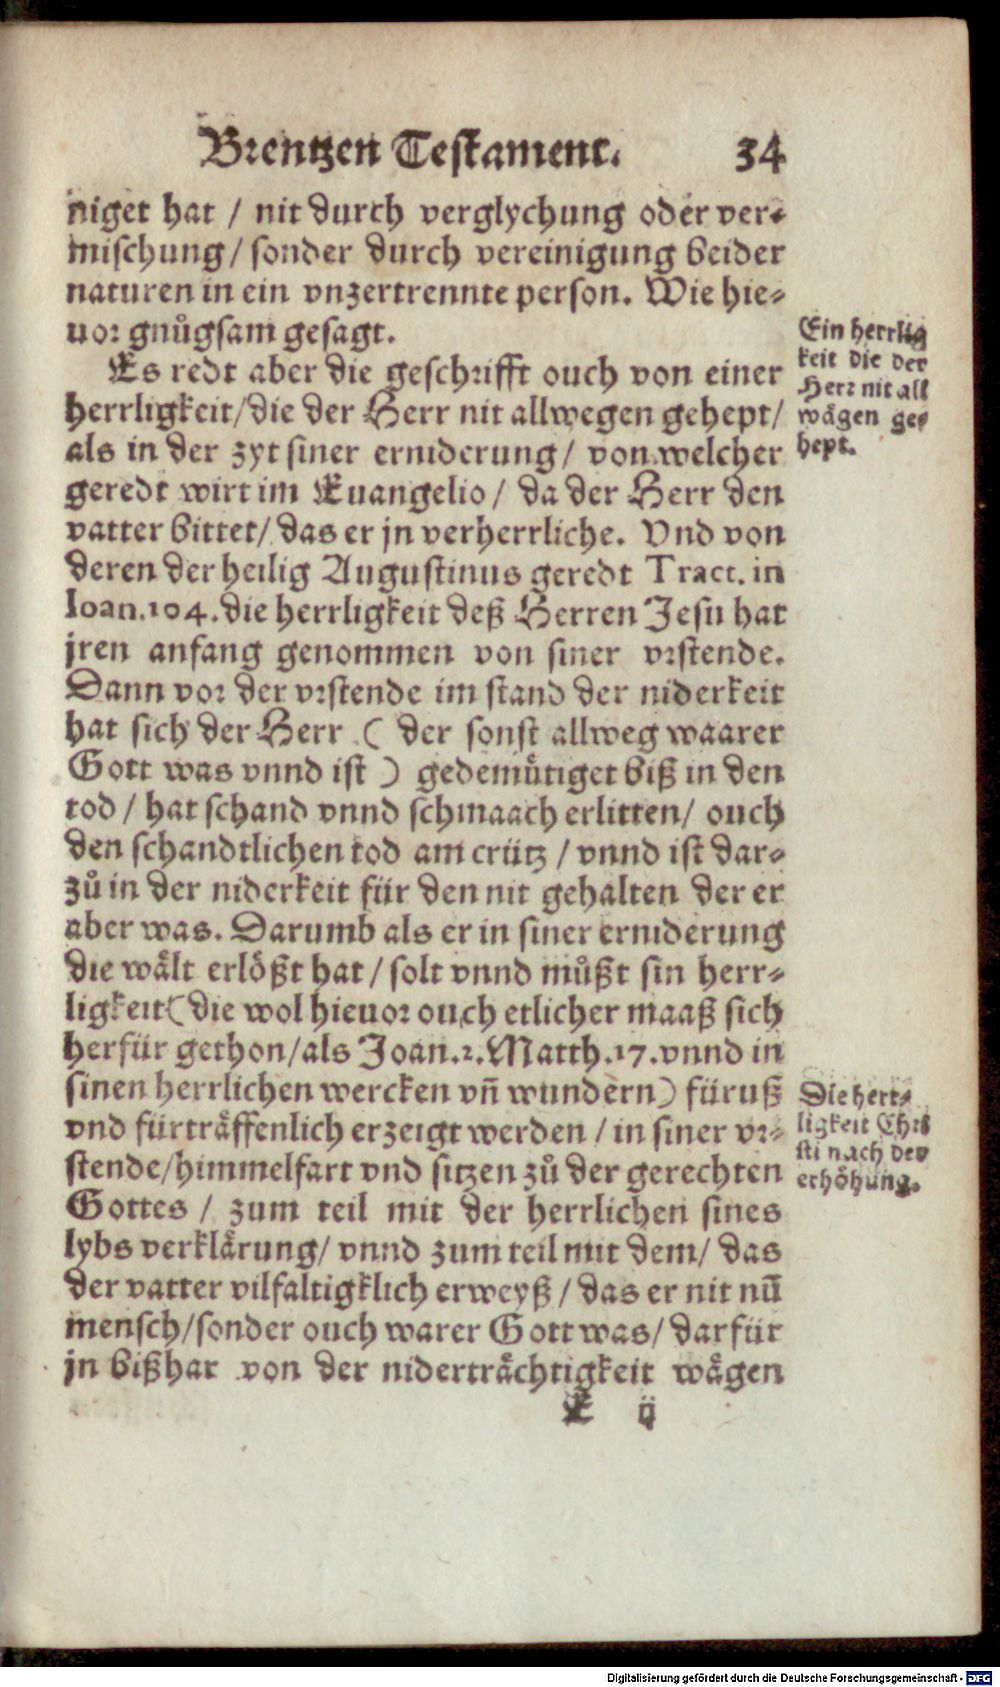 Brentzen Testament. 34
niget hat / nit durch verglychung oder ver-
mischung / sonder durch vereinigung beider
naturen in ein vnzertrennte person. Wie hie-
uor gnůgsam gesagt.
Es redt aber die geschrifft ouch von einer
herrligkeit/die der Herr nit allwegen gehept/
als in der zyt siner erniderung / von welcher
geredt wirt im Euangelio / da der Herr den
vatter bittet/ das er jn verherrliche. Vnd von
deren der heilig Augustinus geredt Tract. in
Ioan.104. die herrligkeit deß Herren Jesu hat
jren anfang genommen von siner vrstende.
Dann vor der vrstende im stand der niderkeit
hat sich der Herr ( der sonst allweg waarer
Gott was vnnd ist ) gedemuͤtiget biß in den
tod / hat schand vnnd schmaach erlitten/ ouch
den schandtlichen tod am crütz / vnnd ist dar-
zů in der niderkeit für den nit gehalten der er
aber was. Darumb als er in siner erniderung
die waͤlt erloͤßt hat / solt vnnd můßt sin herr-
ligkeit(die wol hieuor ouch etlicher maaß sich
herfür gethon/als Joan.2. Matth.17. vnnd in
sinen herrlichen wercken vñ wundern) füruß
vnd fürtraͤffenlich erzeigt werden / in siner vr-
stende/himmelfart vnd sitzen zů der gerechten
Gottes / zum teil mit der herrlichen sines
lybs verklaͤrung/ vnnd zum teil mit dem/ das
der vatter vilfaltigklich erweyß / das er nit nū
mensch/sonder ouch warer Gott was/ darfür
jn bißhar von der nidertraͤchtigkeit waͤgen
E ij
Ein herrlig
keit die der
Herr nit all
waͤgen ge-
hept.
Die herr-
ligkeit Chri
sti nach der
erhoͤhung.
Digitalisierung gefördert durch die Deutsche Forschungsgemeinschaft - DFG